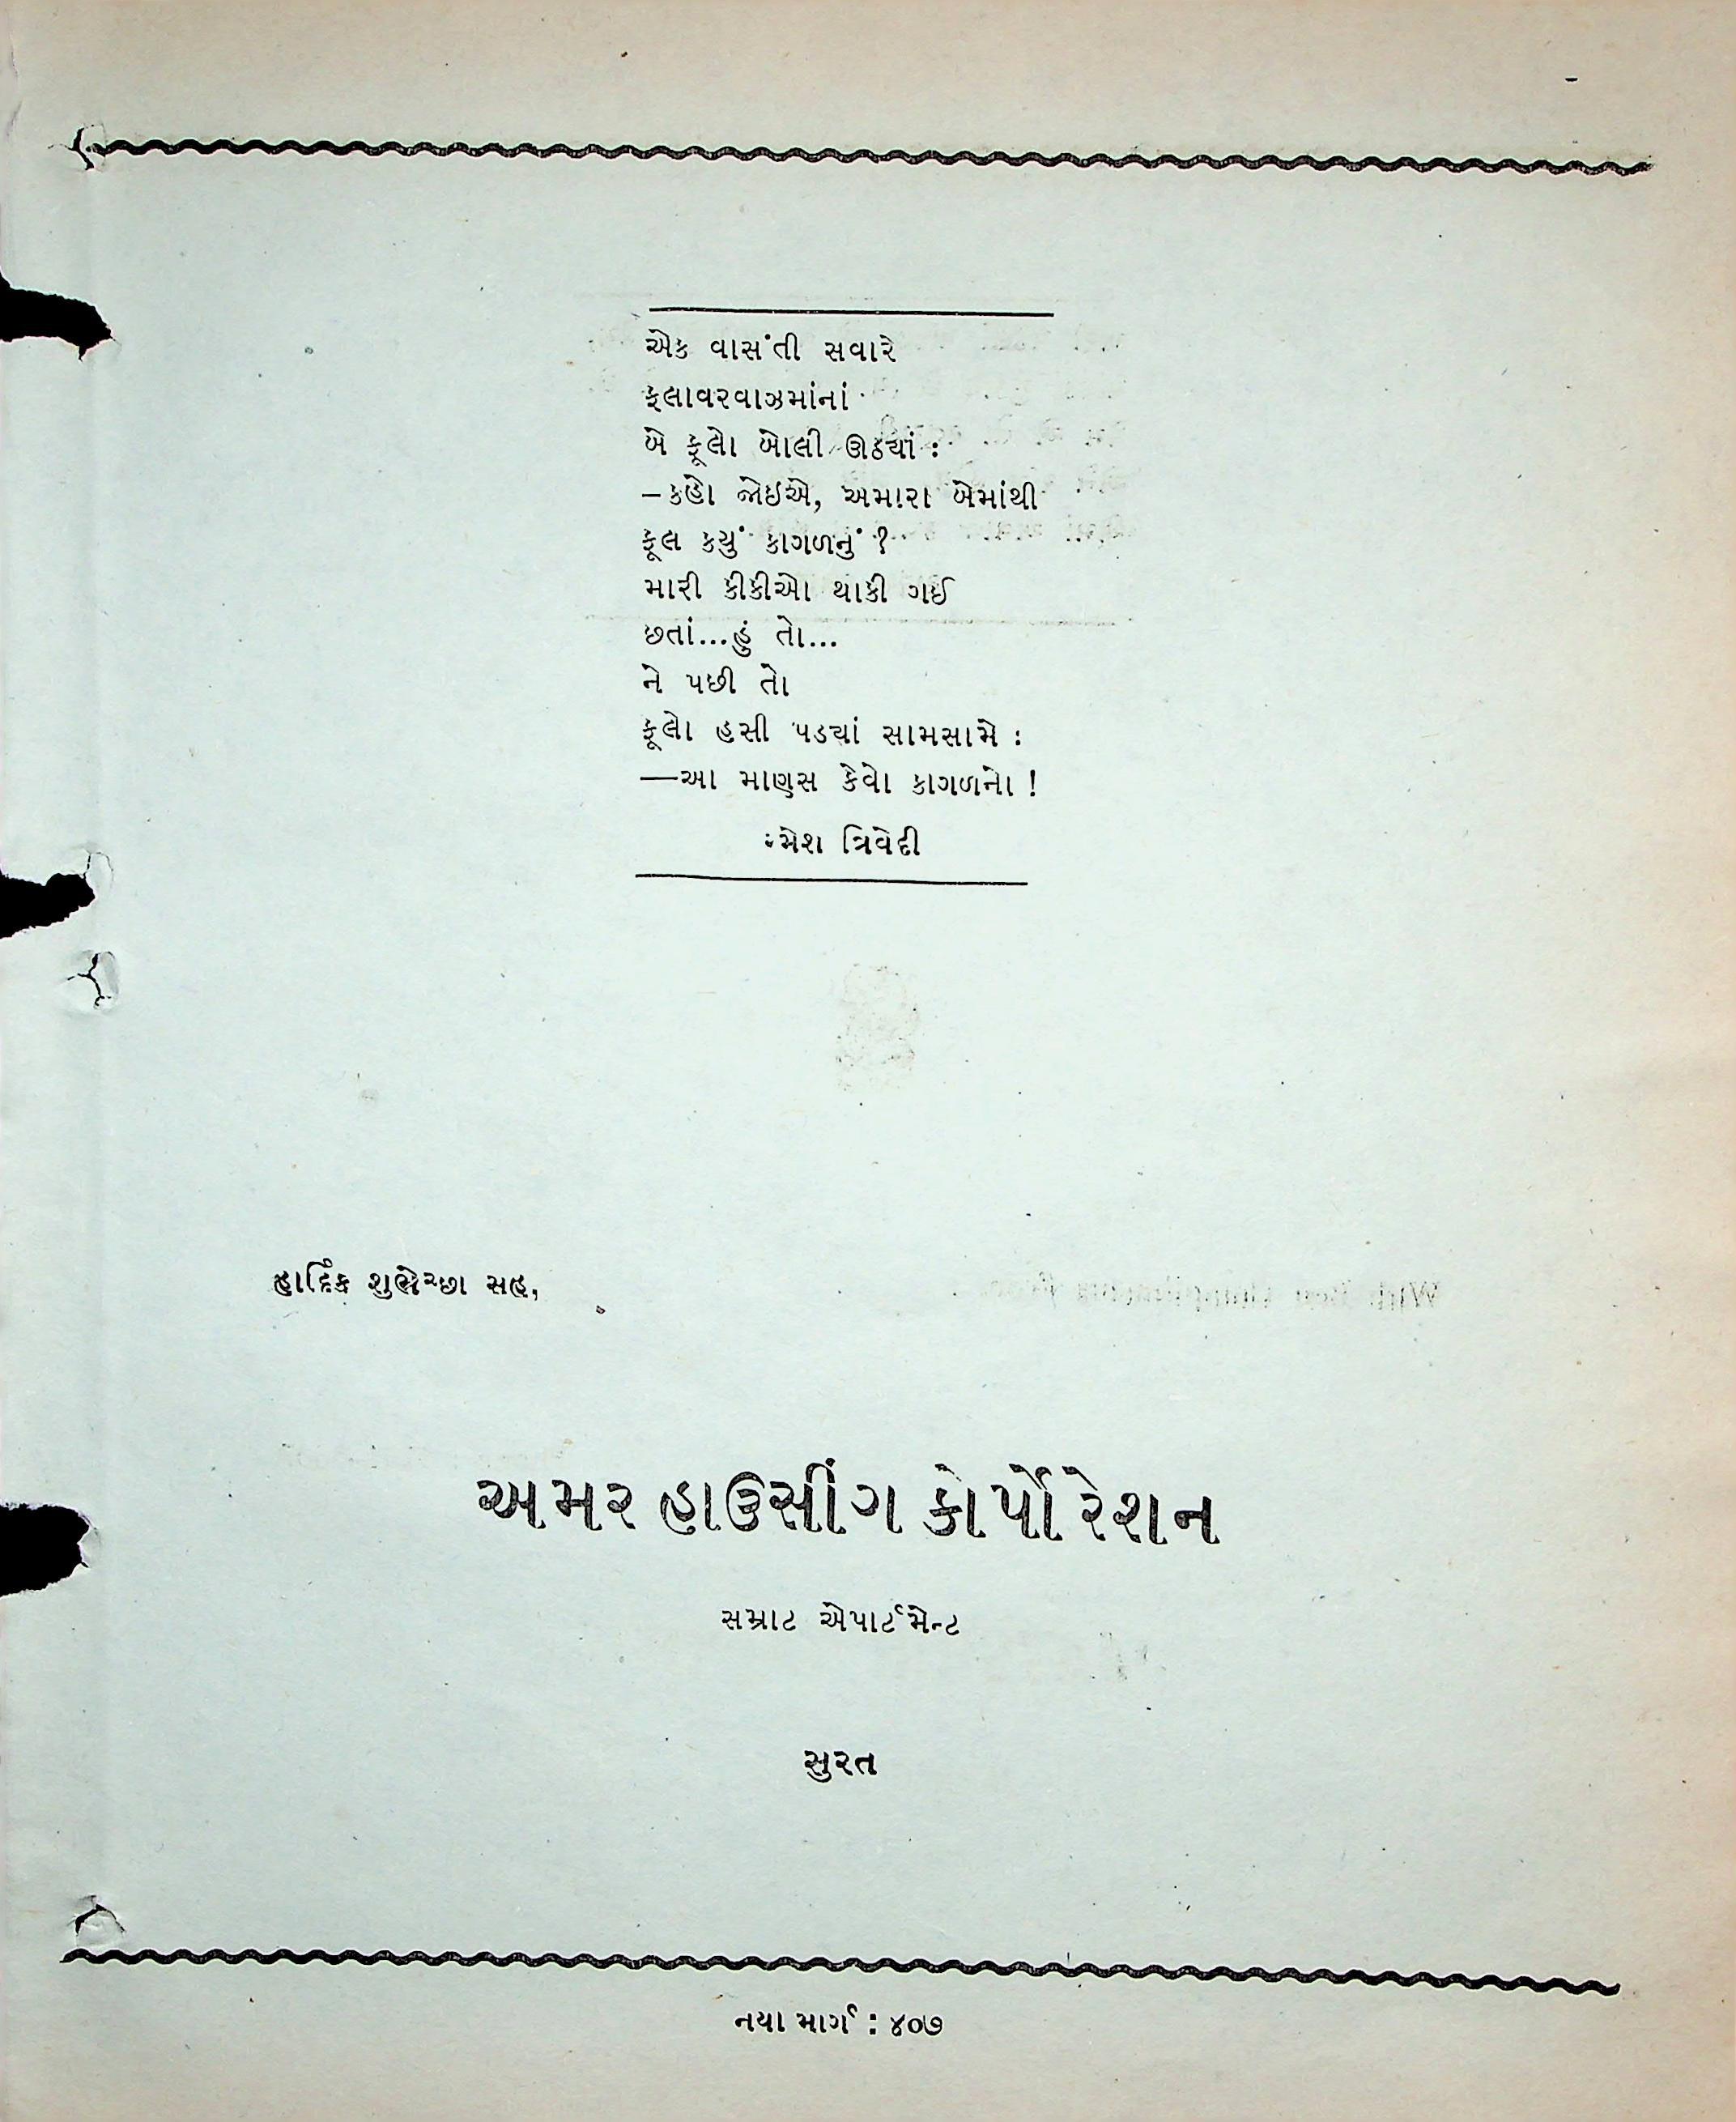 એક વાસંતી સવારે
ફ્લાવરવાઝમાંનાં
બે ફૂલો બોલી ઊઠ્યાં :
–કહો જોઇએ, અમારા બેમાંથી
ફૂલ કયું કાગળનું ?
મારી કીકીઓ થાકી ગઈ
છતાં...હું તો...
ને પછી તો
ફૂલો હસી પડ્યાં સામસામે :
—આ માણસ કેવો કાગળનો !
ત્રિવેદી
હાર્દિક શુભેચ્છા સહ,
અમર હાઉસીંગ કોર્પોરેશન
સમ્રાટ એપાર્ટમેન્ટ
સુરત
નયા માર્ગ : ૪૦૭